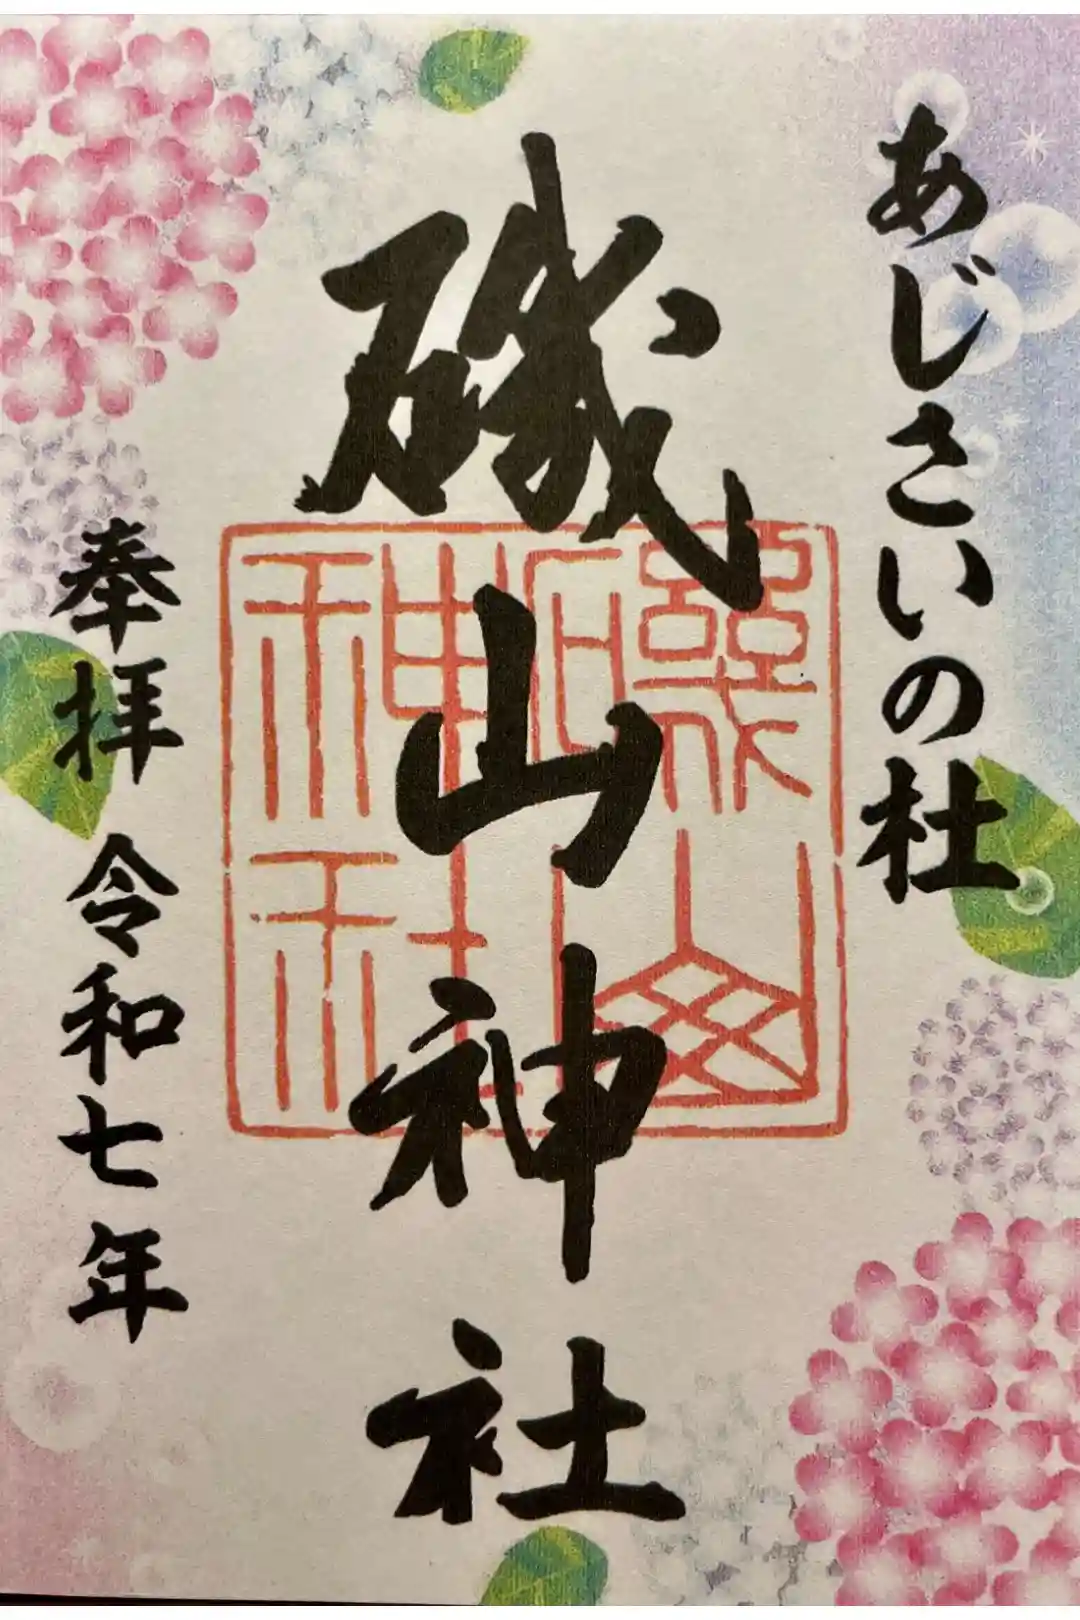 あじさいの杜
磯山神社
奉拝 令和七年